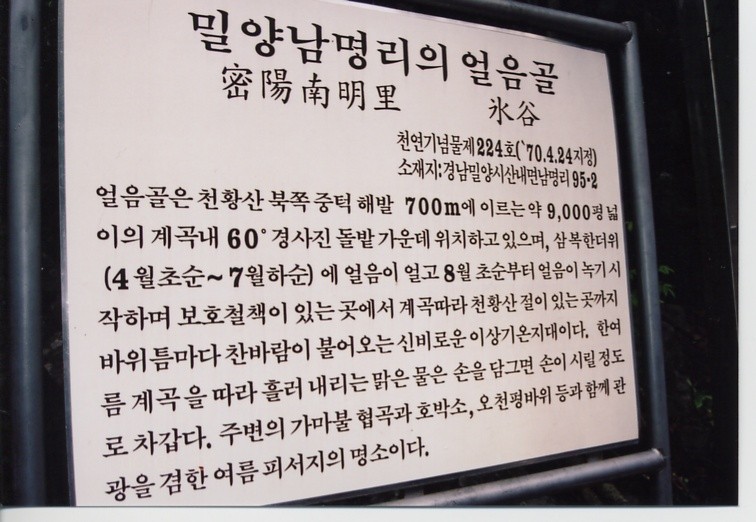 밀양남명리의 얼음골
密陽南明里 氷谷
천연기념물제224호(`70.4.24지정)
소재지:경남밀양시산내면남명리95·2
얼음골은 천황산 북쪽 중턱 해발 700m에 이르는 약 9,000평 넓
이의 계곡내 60°경사진 돌밭 가운데 위치하고 있으며, 삼복한더위
(4월초순~7월하순)에 얼음이 얼고 8월 초순부터 얼음이 녹기 시
작하며 보호철책이 있는 곳에서 계곡따라 천황산 절이 있는 곳까지
바위틈마다 찬바람이 불어오는 신비로운 이상기온지대이다. 한여
름 계곡을 따라 흘러 내리는 맑은 물은 손을 담그면 손이 시릴 정도
로 차갑다. 주변의 가마불 협곡과 호박소, 오천평바위 등과 함께 관
광을 겸한 여름 피서지의 명소이다.